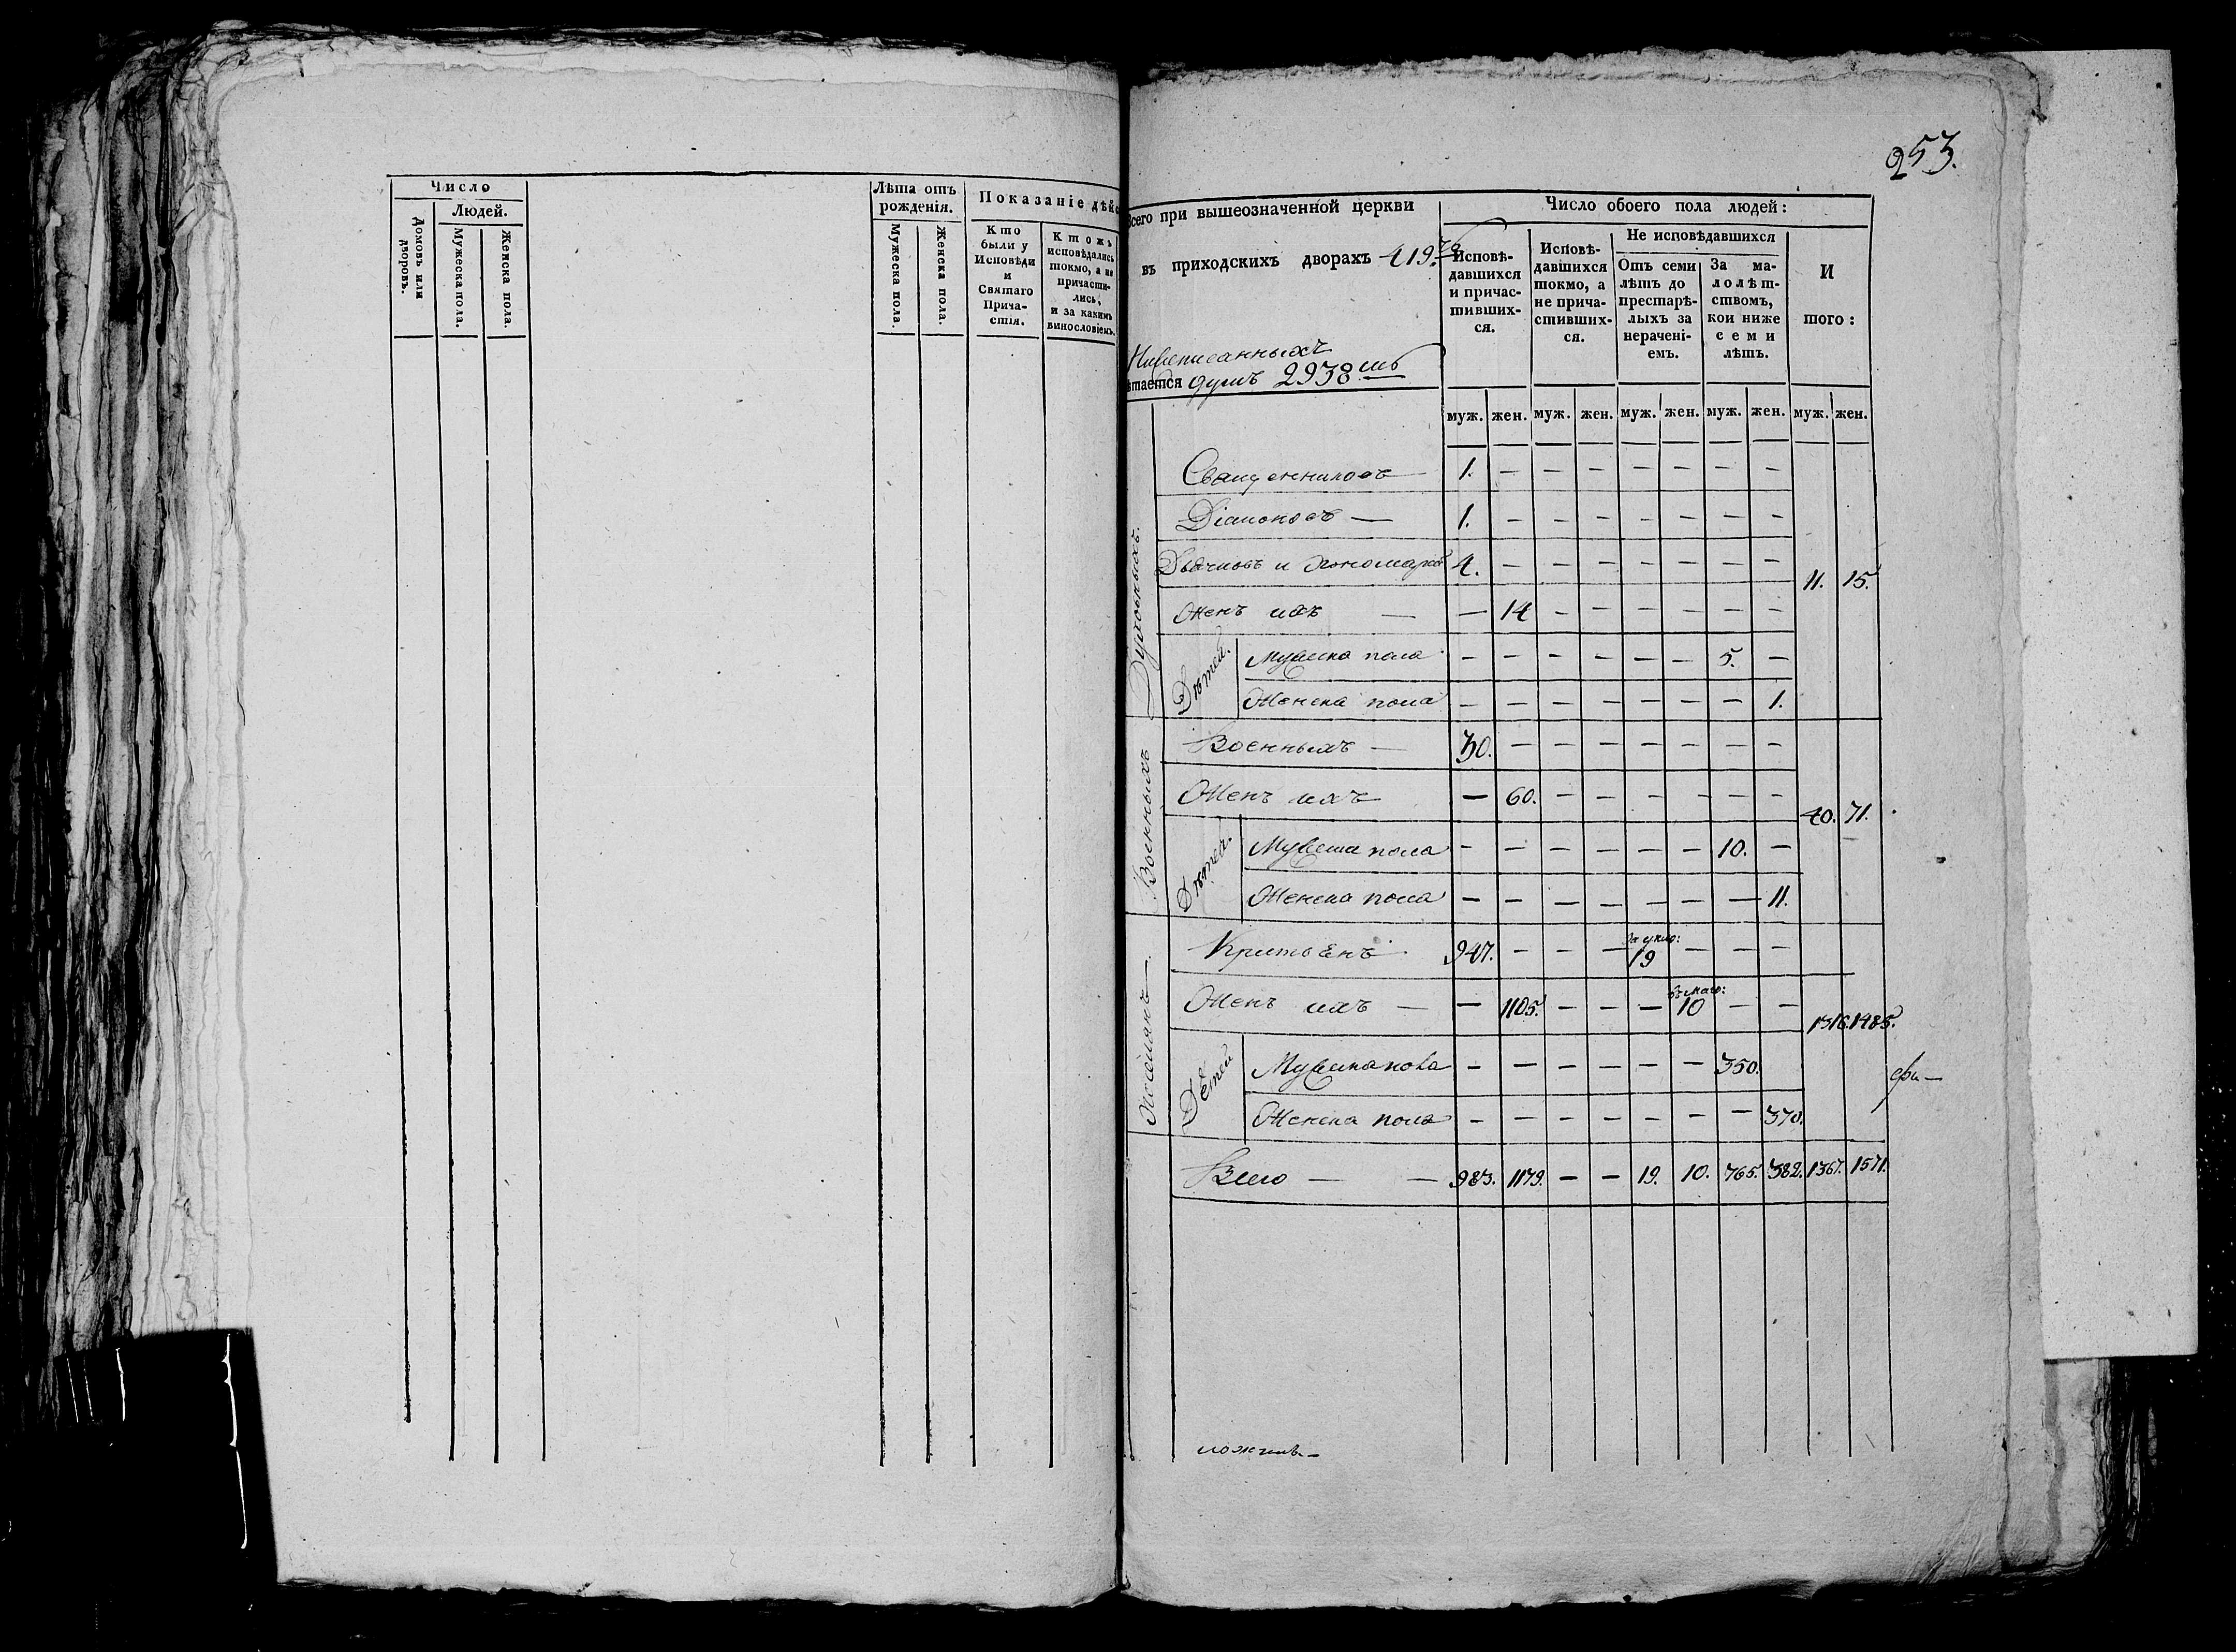 253.
Число
Людей.
Домовъ или дворовъ.
Мужеска пола.
Женска пола.
Лѣта отъ рожденія.
Мужеска пола.
Женска пола.
Показаніе дѣйс
Кто были у Исповѣди и Святаго Прича-стія.
Ктожъ исповѣдались токмо, а не причасти-лись, и за какимъ винословіемъ.
Всего при вышеозначенной церкви
въ приходскихъ дворахъ 419.
душъ 2938
Число обоего пола людей:
Исповѣ-давшихся и причас-тивших-ся.
Исповѣ-давшихся токмо, а не прича-стивших-ся.
Не исповѣдавшихся
Отъ семи лѣтъ до престарѣ-лыхъ за нерачені-емъ.
За ма-лолѣт-ствомъ, кои ниже семи лѣтъ.
И того:
муж. жен. муж. жен. муж. жен. муж. жен. муж. жен.
Духовныхъ.
Священниковъ — 1. — — — — — — —
Діаконовъ — 1. — — — — — — —
Дьячковъ и Пономарей 4. — — — — — — —
11. 15.
Женъ ихъ — — 14 — — — — — —
Дѣтей.
Мужеска пола — — — — — — 5. —
Женска пола — — — — — — — 1.
Военныхъ
Военныхъ — 30. — — — — — — —
Женъ ихъ — 60. — — — — — —
40. 71.
Дѣтей.
Мужеска пола — — — — — — 10. —
Женска пола — — — — — — — 11.
947. — — — 19 — — —
Женъ ихъ — — 1105. — — — 10 — —
1316. 1485.
Дѣтей
Мужеска пола — — — — — — 350.
Женска пола — — — — — — — 370.
Всего — — 983. 1179. — — 19. 10. 365. 382. 1367. 1571.